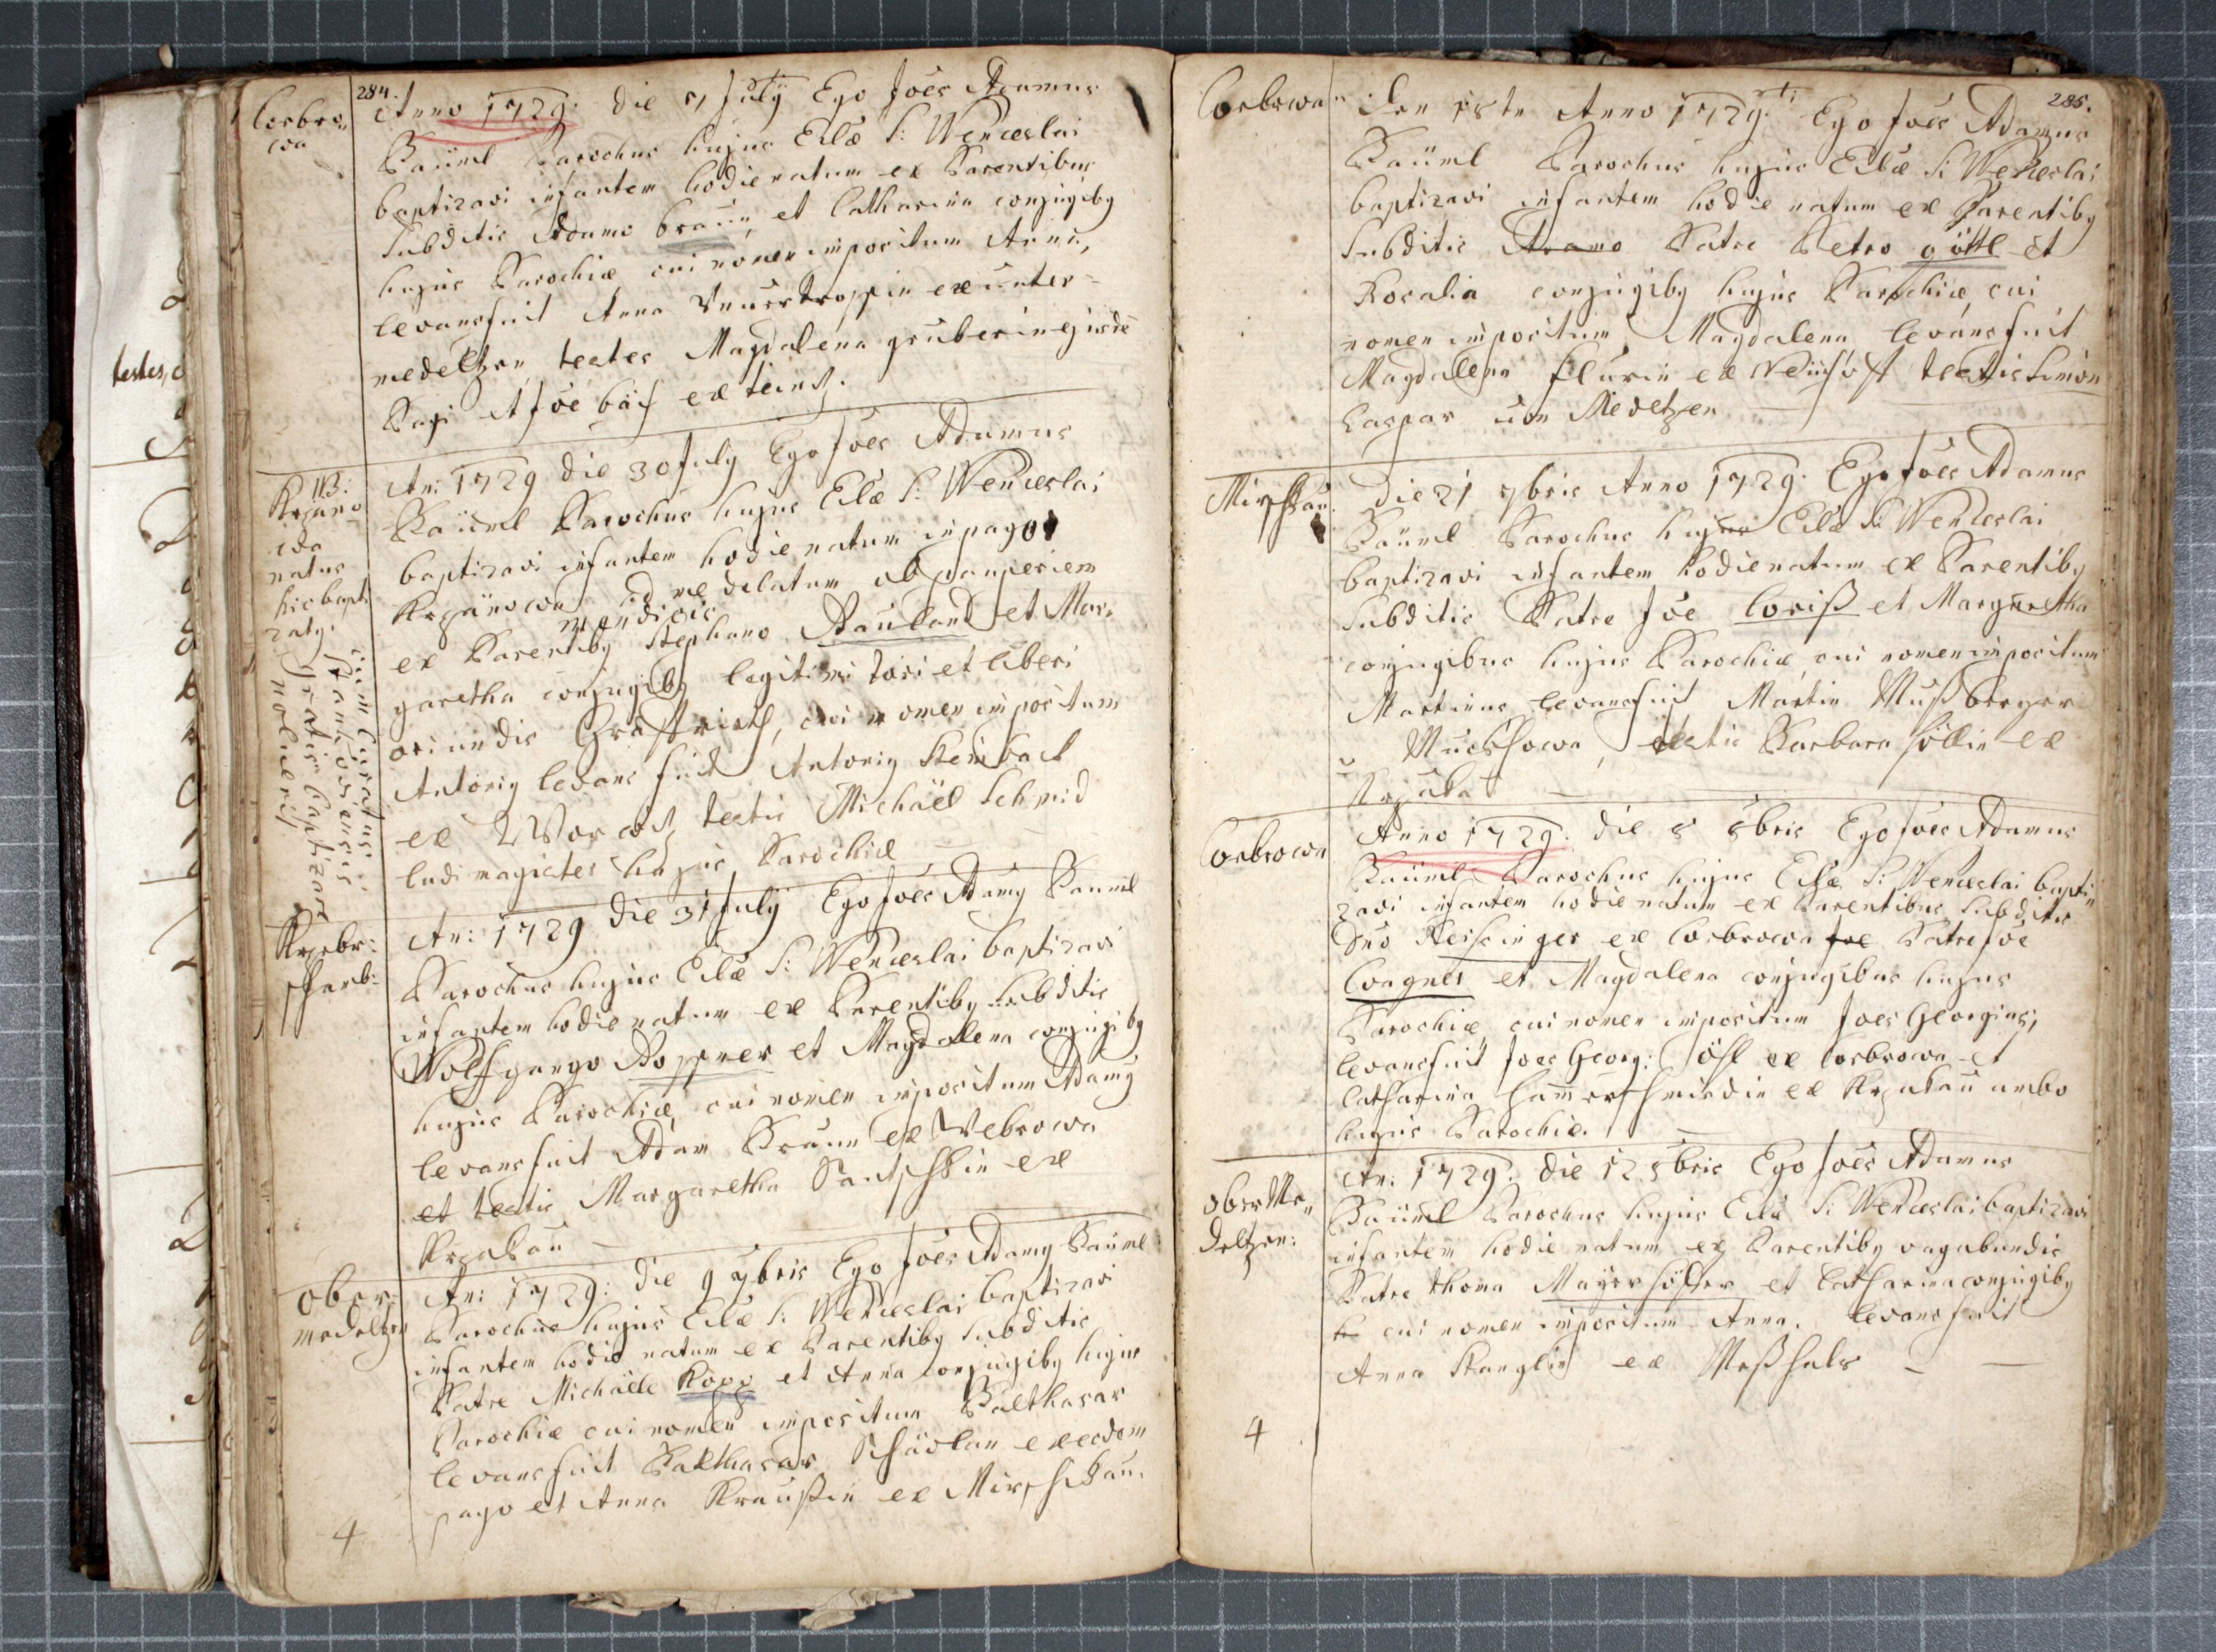 testes, e
284.
Corbro„
wa
Anno 1729. die 7 July Ego Joēs Adamus
Baüml Parochus hujus Eclæ S: Wenceslai
baptizavi infantem hodie natum ex Parentibus
subditis Adamo braün et Catharina conjugiby
hujus Parochiæ cui nomen impositum Anna,
levansfuit Anna ex unter-
medeltzen testes Magdalena gruberin ejusdē
Pagi et Joē ex
NB:
Krzano
wa
natus
hic bapti
zaty.
cum Curatus
gratis baptizare
noluerit
An: 1729 die 30 July Ego Joēs Adamus
Baüml Parochus hujus Eclæ S: Wenceslai
baptizavi infantem hodie natum in pago
Krzanowa ad me delatum ob pauperiem
mendicis
ex Parentiby Stephano et Mar„
garetha conjugiby legitimi tori et liberi
oriundis cui nomen impositum
Antoniy levans fuit Antoniy Steinbach
ex testis Michäel Schmid
ludi magister hujus Parochiæ
Krzebr:
scharb:
An: 1729 die 31 July Ego Joēs Adamy Bauml
Parochus hujus Eclæ S: Wenceslai baptizavi
infantem hodie natum ex Parentiby subditis
Wolfgango Poppner et Magdalena conjugiby
hujus Parochiæ cui nomen impositum Adamy
levans fuit Adam Braun ex Webrowa
et testis Margaretha ex
Krzakau
ober
medeltzen
An: 1729: die 9 7bris Ego Joēs Adamy Baüml
Parochus hujus Eclæ S: Wenceslai baptizavi
infantem hodie natum ex Parentiby subditis
Patre Michäele Kopp et Anna conjugiby hujus
Parochiæ cui nomen impositum Balthasar
levans fuit Balthasar ex eodem
pago et Anna Kraußin ex Mirschkau.
4
285.
Corbrowa
Anno 1729. Ego Joēs Adamus
Baüml Parochus hujus Eclæ S: Wenceslai
baptizavi infantem hodie natum ex Parentiby
subditis Adamo Patre Petro göttl et
Rosalia conjugiby hujus Parochiæ cui
nomen impositum Magdalena levans fuit
Magdalena flurin ex testis Simon
Caspar von Medeltzen
Mirschkau.
Die 21 7bris Anno 1729. Ego Joēs Adamus
Baüml Parochus hujus Eclæ S: Wenceslai
baptizavi infantem hodie natum ex Parentiby
subditis Patre Joē Coriß et Margaretha
conjugibus hujus Parochiæ cui nomen impositum
Martinus levansfuit Martin Mußberger
testis Barbara ex
Krzaka
Corbrowa
Anno 1729. die 8 8bris Ego Joēs Adamus
Baüml Parochus hujus Eclæ S: Wenceslai bapti„
zavi infantem hodie natum ex Parentibus subditis
Dno Reisinger ex Corbrowa Patre Joē
Wagner et Magdalena conjugibus hujus
Parochiæ cui nomen impositum Joes Georgius,
levansfuit Joes Georg: ex Corbrowa et
Catharina Hammerschmidin ex Krzakau ambo
hujus Parochiæ.
ober Me„
deltzen:
An: 1729. die 12 8bris Ego Joēs Adamus
Baüml Parochus hujus Eclæ S: Wenceslai baptizavi
infantem hodie natum ex Parentiby vagabundis
Patre Thoma Mayerhöffer et Catharina conjugiby
cui nomen impositum Anna. levans fuit
Anna Stanglin ex
4